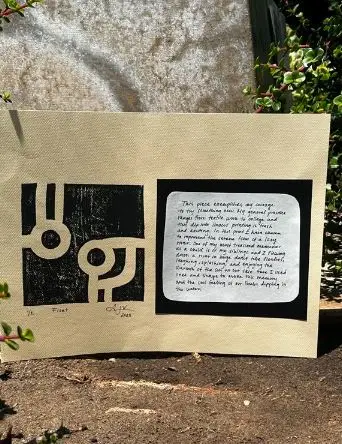 This piece exemplifies my courage
to try something new. My general practice
ranges from textile work to collage and
this dip into linocut printing is fresh
and exciting. In this print I have chosen
to represent the serene flow of a lazy
river. One of my most treasured memories
as a child is of my siblings and I floating
down a river in large donut like floaties,
laughing, splashing, and enjoying the
warmth of the sun on our face. Here I used
line and shape to evoke this memory
and the cool feeling of our limbs dipping in
the water.
1/2 Float
2023